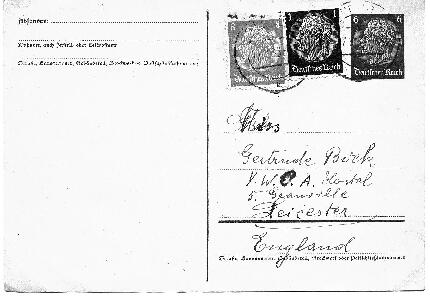 Absender:
Wohnort, auch Zustell- oder Leitpostamt
Straße, Hausnummer, Gebäudeteil, Stockwerk od. Postschließfachnummer
6
Deutsches Reich
1 1
Deutsches Reich
6 6
Deutsches Reich
Miss
Gertrude Böck
Y. W. C. A. Hostal
5. Granville
Leicester
England
Straße, Hausnummer, Gebäudeteil, Stockwerk oder Postschließfachnummer